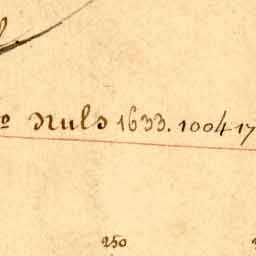 º nuls 1633. 1004 17
250